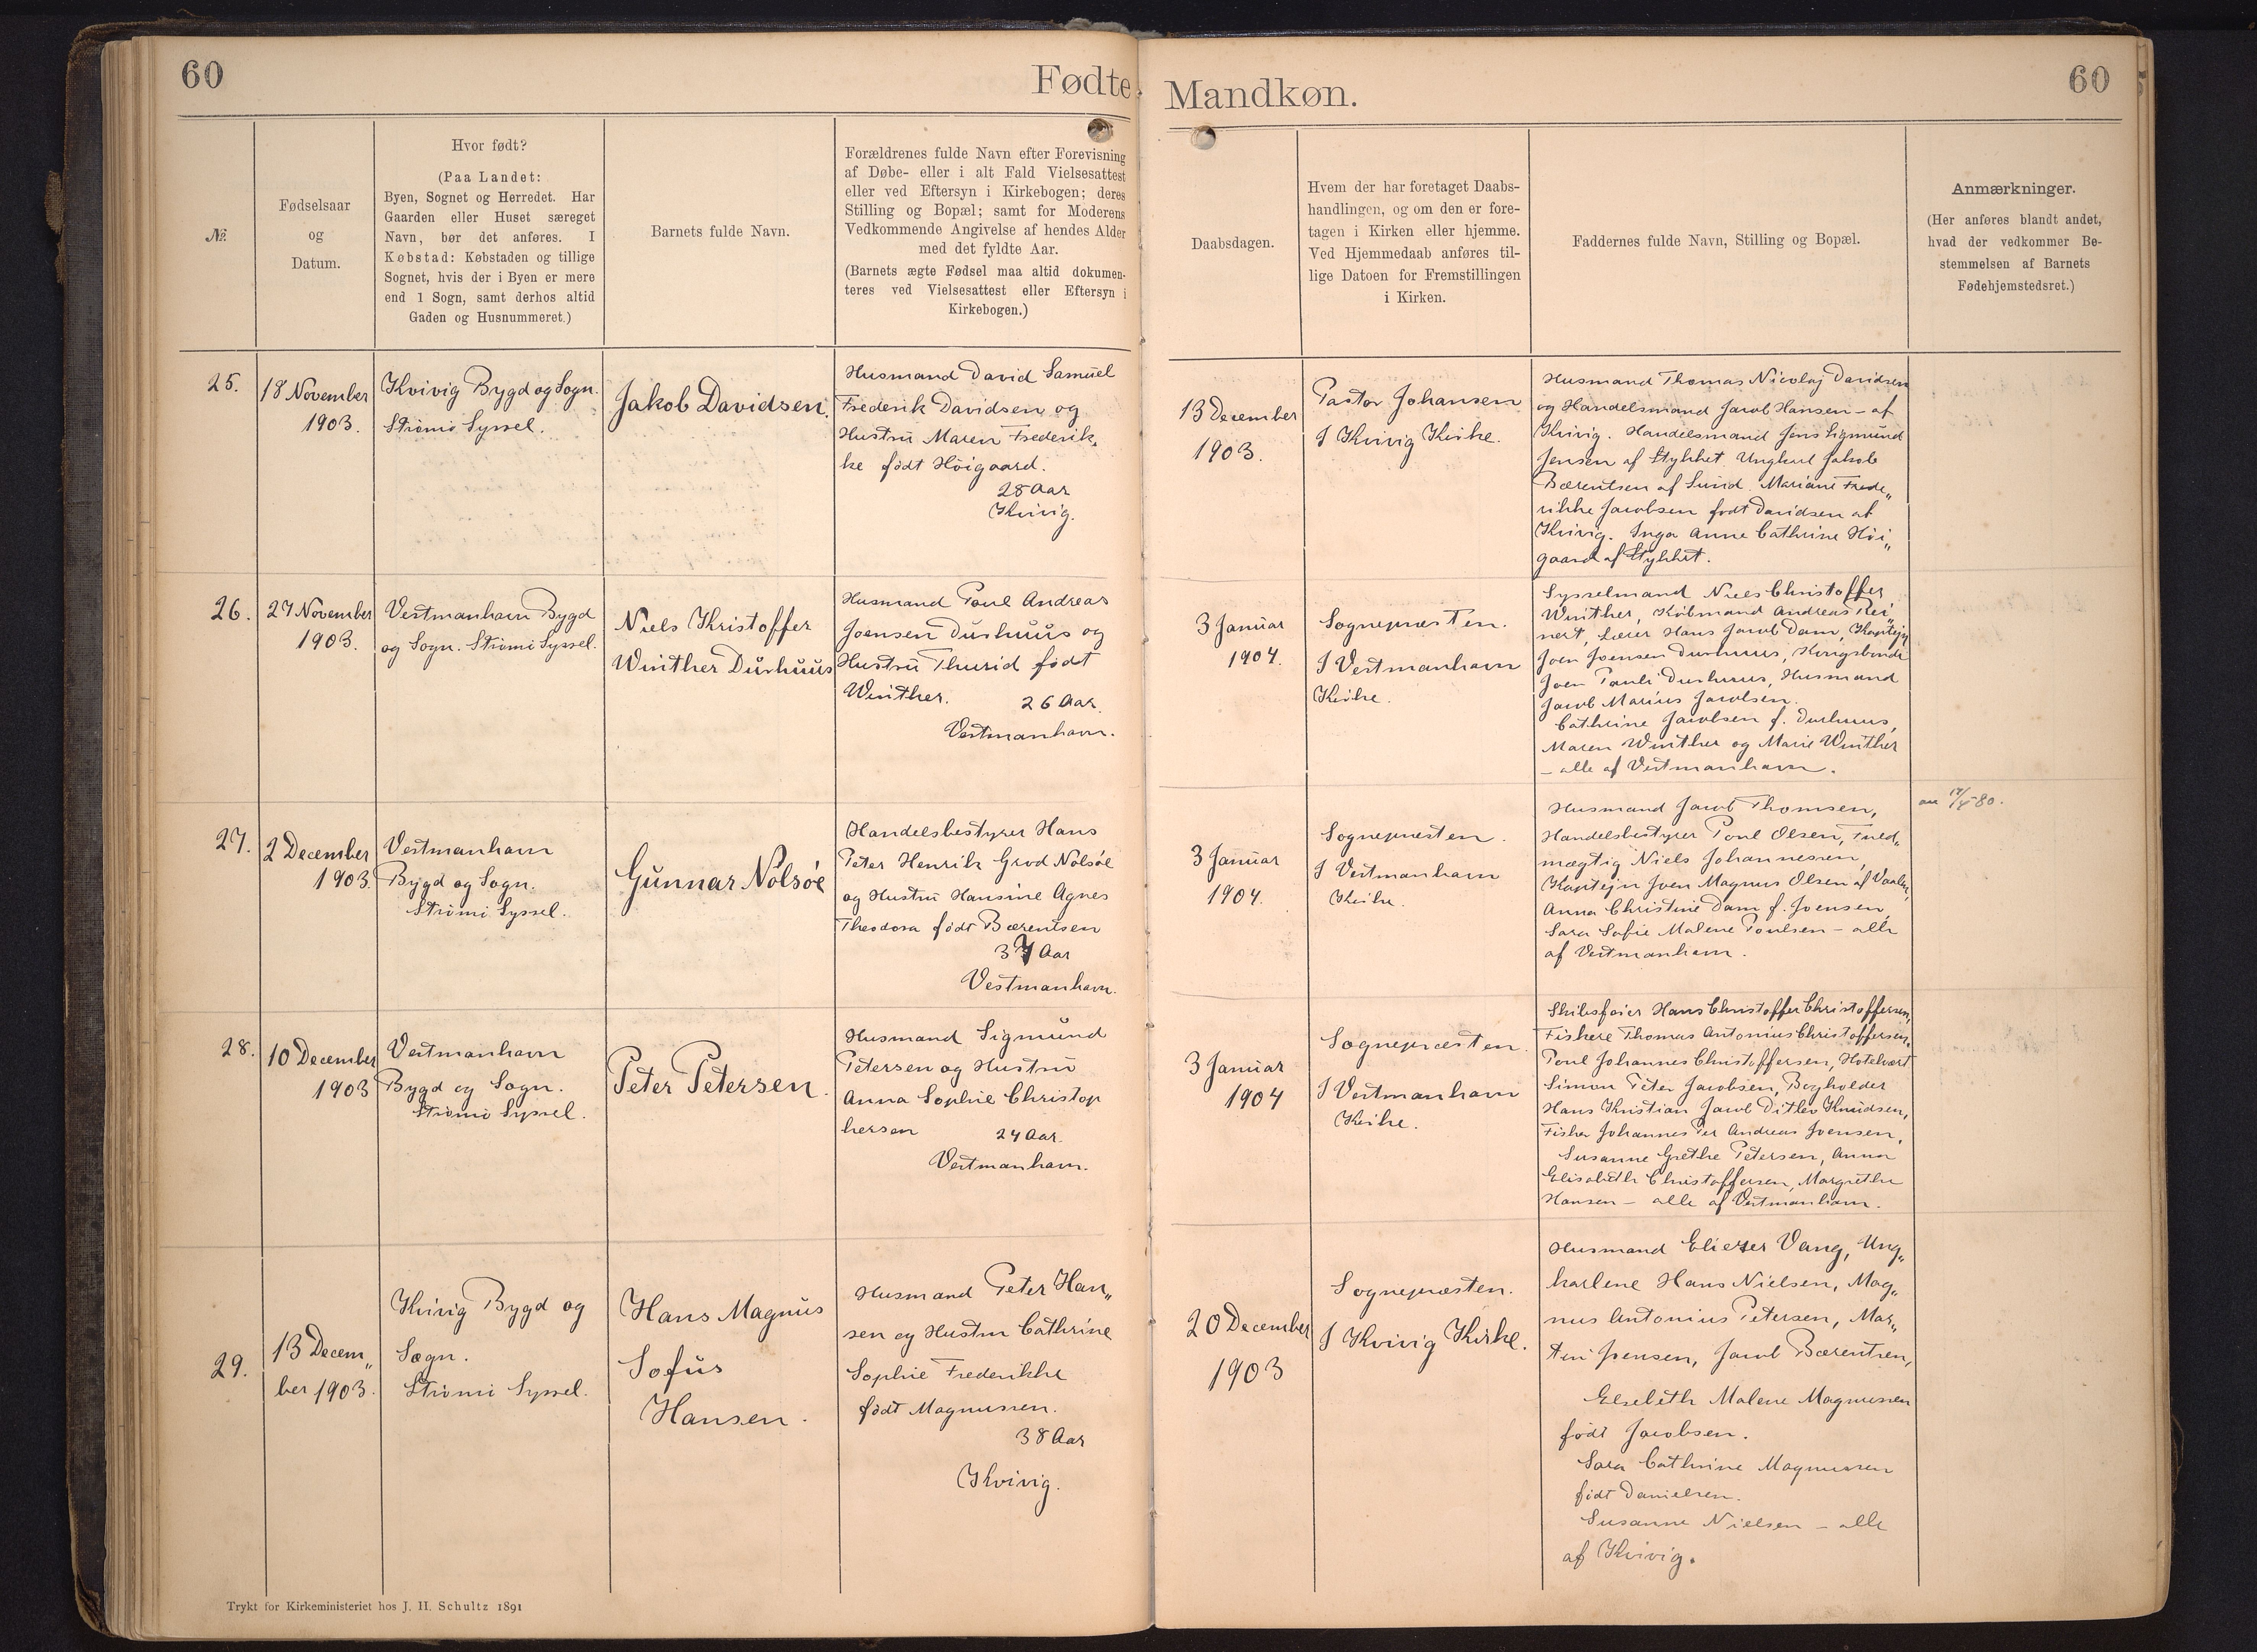 60
Fødte
№
Fødselsaar
og
Datum.
Hvor født?
(Paa Landet:
Byen, Sognet og Herredet. Har
Gaarden eller Huset særeget
Navn, bør det anføres. I
Købstad: Købstaden og tillige
Sognet, hvis der i Byen er mere
end 1 Sogn, samt derhos altid
Gaden og Husnummeret.)
Barnets fulde Navn.
Forældrenes fulde Navn efter Forevisning
af Døbe- eller i alt Fald Vielsesattest
eller ved Eftersyn i Kirkebogen; deres
Stilling og Bopæl; samt for Moderens
Vedkommende Angivelse af hendes Alder
med det fyldte Aar.
(Barnets ægte Fødsel maa altid dokumen-
teres ved Vielsesattest eller Eftersyn i
Kirkebogen.)
25.
18 November
1903.
Kvivig Bygd og Sogn.
Strømø Syssel.
Jakob Davidsen.
Husmand David Samuel
Frederik Davidsen og
Hustru Maren Frederik„
ke født Höigaard.
28 Aar
Kvivig.
26.
27 November
1903.
Vestmanhavn Bygd
og Sogn. Strømø Syssel.
Niels Kristoffer
Winther Durhuus
Husmand Poul Andreas
Joensen Durhuus og
Hustru Thurid født
Winther.
26 Aar.
Vestmanhavn.
27.
2 December
1903.
Vestmanhavn
Bygd og Sogn.
Strømø Syssel.
Gunnar Nolsøe
Handelsbestyrer Hans
Peter Henrik Grod Nolsøe
og Hustru Hansine Agnes
Theodora født Bærentsen
37 Aar
Vestmanhavn.
28.
10 December
1903
Vestmanhavn
Bygd og Sogn.
Strømø Syssel.
Peter Petersen.
Husmand Sigmund
Petersen og Hustru
Anna Sophie Christop
hersen
24 Aar.
Vestmanhavn.
29.
13 Decem„
ber 1903.
Kvivig Bygd og
Sogn.
Strømø Syssel.
Hans Magnus
Sofus
Hansen.
Husmand Peter Han„
sen og Hustru Cathrine
Sophie Frederikke
født Magnussen.
38 Aar
Kvivig.
Trykt for Kirkeministeriet hos J. H. Schultz 1891
Mandkøn.
60
Daabsdagen.
Hvem der har foretaget Daabs-
handlingen, og om den er fore-
tagen i Kirken eller hjemme.
Ved Hjemmedaab anføres til-
lige Datoen for Fremstillingen
i Kirken.
Faddernes fulde Navn, Stilling og Bopæl.
Anmærkninger.
(Her anføres blandt andet,
hvad der vedkommer Be-
stemmelsen af Barnets
Fødehjemstedsret.)
13 December
1903.
Pastor Johansen
I Kvivig Kirke.
Husmand Thomas Nicolaj Davidsen
og Handelsmand Jacob Hansen – af
Kvivig. Handelsmand Jens Sigmund
Jensen af Stykket. Ungkarl Jakob
Bærentsen af Sund. Mariane Frede„
rikke Jacobsen født Davidsen af
Kvivig. Inga Anne Cathrine Höi„
gaard af Stykket.
3 Januar
1904.
Sognepræsten.
I Vestmanhavn
Kirke.
Sysselmand Niels Christoffer
Winther, Købmand Andreas Rei„
nert, Lærer Hans Jacob Dam, Kaptejn
Joen Joensen Durhuus, Kongsbonde
Joen Pauli Durhuus, Husmand
Jacob Marius Jacobsen.
Cathrine Jacobsen f. Durhuus,
Maren Winther og Marie Winther
– alle af Vestmanhavn.
3 Januar
1904.
Sognepræsten.
I Vestmanhavn
Kirke.
Husmand Jacob Thomsen,
Handelsbestyrer Poul Olsen, Fuld„
mægtig Niels Johannesen,
Kaptejn Joen Magnus Olsen af
Anna Christine Dam f. Joensen,
Sara Sofie Malene Poulsen – alle
af Vestmanhavn.
3 Januar
1904
Sognepræsten.
I Vestmanhavn
Kirke.
Skibsfører Hans Christoffer Christoffersen,
Fiskere Thomas Antonius Christoffersen,
Poul Johannes Christoffersen, Hotelvært
Simon Peter Jacobsen, Bogholder
Hans Kristian Jacob Ditlev Knudsen,
Fisker Johannes Per Andreas Joensen,
Susanne Grethe Petersen, Anna
Elisabeth Christoffersen, Margrethe
Hansen – alle af Vestmanhavn.
20 December
1903
Sognepræsten.
I Kvivig Kirke.
Husmand Elieser Vang, Ung„
karlene Hans Nielsen, Mag„
nus Antonius Petersen, Mor„
ten Joensen, Jacob Bærentsen,
Elsebeth Malene Magnussen
født Jacobsen.
Sara Cathrine Magnussen
født Danielsen.
Susanne Nielsen – alle
af Kvivig.